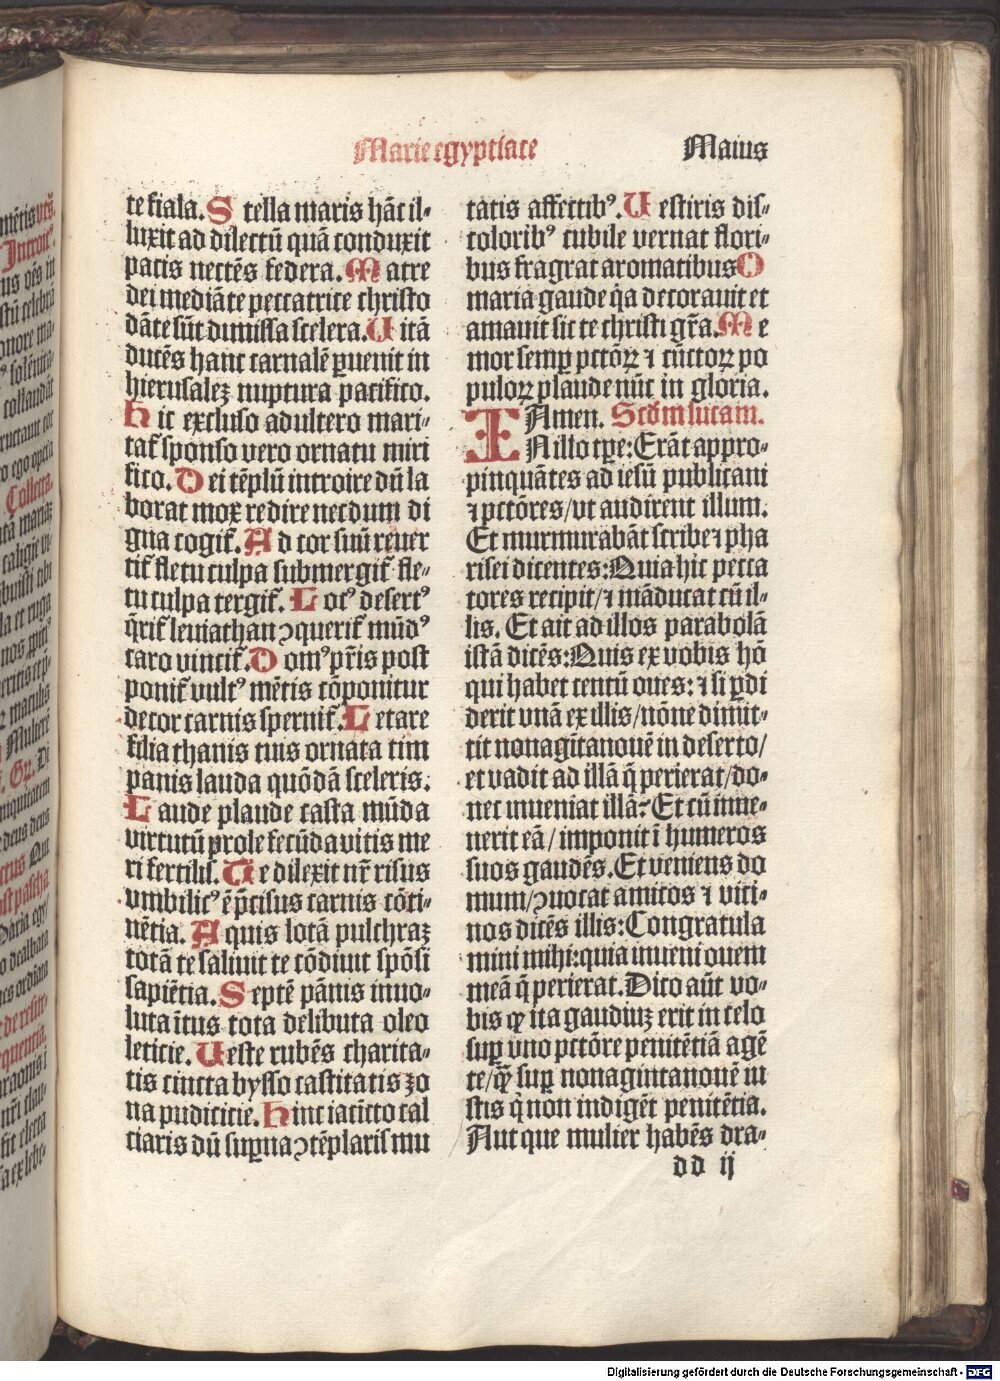 Marie egyptiace
Maius
te fiala. Stella maris hāc il⸗
luxit ad dilectū quā conduxit
pacis nectēs federa. Matre
dei mediāte peccatrice christo
dāte sūt dimissa scelera. Uitā
ducēs hanc carnalē ꝑuenit in
hierusalē nuptura pacifico.
Hic excluso adultero mari⸗
tat᷑ sponso vero ornatu miri
fico. Dei tēplū introire dū la
borat mox redire necdum di
gna cogit᷑. Ad cor suū reuer
tit᷑ fletu culpa submergit᷑ fle⸗
tu culpa tergit᷑. Locꝰ desertꝰ
q̄rit᷑ leuiathan ꝯquerit᷑ mūdꝰ
caro vincit᷑. Domꝰ pr̄is post
ponit᷑ vultꝰ mētis cōponitur
decor carnis spernit᷑. Letare
filia thanis tuis ornata tim
panis lauda quōdā sceleris.
Laude plaude casta mūda
virtutū prole fecūda vitis me
ri fertilis. Te dilexit nr̄ risus
vmbilicꝰ ē p̄cisus carnis cōti⸗
nētia. Aquis lotā pulchraꝫ
totā te saliuit te cōdiuit spōsi
sapiētia. Septē pānis inuo⸗
luta ītus tota delibuta oleo
leticie. Ueste rubēs charita⸗
tis cincta bysso castitatis zo
na pudicicie. Hinc iacitto cal
ciaris dū suꝑna ꝯtēplaris mu
tatis affectibꝰ. Uestiris dis⸗
coloribꝰ cubile vernat flori⸗
bus fragrat aromatibus O
maria gaude q̇a decorauit et
amauit sic te christi gr̄a. Me
mor semꝑ pctōꝝ ⁊ cūctoꝝ po
puloꝝ plaude nūc in gloria.
Amen. Scd̄m lucam.
IN illo tꝑe: Erāt appro⸗
pinquātes ad iesū publicani
⁊ pctōres/ vt audirent illum.
Et murmurabāt scribe ⁊ pha
risei dicentes: Quia hic pecca
tores recipit/ ⁊ māducat cū il⸗
lis. Et ait ad illos parabolā
istā dicēs: Quis ex vobis hō
qui habet centū oues: ⁊ si ꝑdi
derit vnā ex illis/ nōne dimit⸗
tit nonagītanouē in deserto/
et vadit ad illā q̄ perierat/ do⸗
nec inueniat illā? Et cū inue⸗
nerit eā/ imponit ī humeros
suos gaudēs. Et veniens do
mum/ ꝯuocat amicos ⁊ vici⸗
nos dicēs illis: Congratula
mini mihi: quia inueni ouem
meā q̄ perierat. Dico aūt vo⸗
bis ꝙ ita gaudiuꝫ erit in celo
suꝑ vno pctōre penitētiā agē
te/ ꝙ̄ suꝑ nonagintanouē iu
stis q̇ non indigēt penitētia.
Aut que mulier habēs dra⸗
dd ij
Digitalisierung gefördert durch die Deutsche Forschungsgemeinschaft - DFG